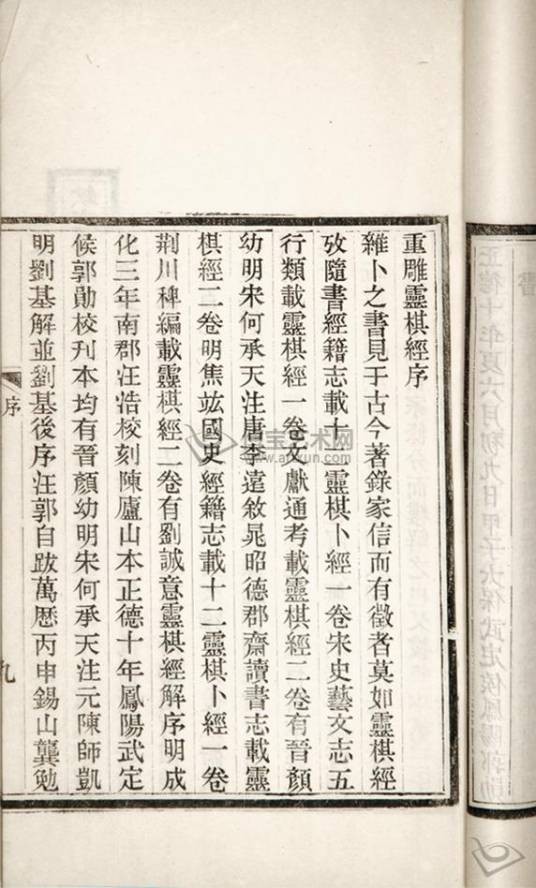 重雕靈棋經序
雜卜之書見于古今著錄家信而有徵者莫如靈棋經
攷隨書經籍志載十二靈棋卜經一卷宋史藝文志五
行類載靈棋經一卷文獻通考載靈棋經二卷有晉顏
幼明宋何承天注唐李遠敘晁昭德郡齋讀書志載靈
棋經二卷明焦竑國史經籍志載十二靈棋卜經一卷
荆川稗編載靈棋經二卷有劉誠意靈棋經解序明成
化三年南郡汪浩校刻陳廬山本正德十年鳳陽武定
侯郭勛校刊本均有晉顏幼明宋何承天注元陳師凱
明劉基解並劉基後序汪郭自跋萬歷丙申錫山龔勉
序
九